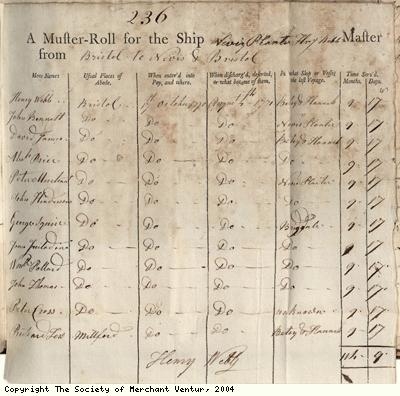 236
A Muster-Roll for the Ship Nevis Planter Henry Webb Master
from Bristol to Nevis & Bristol
Mens Names Usual Places of Abode. When enter'd into Pay, and where. When discharg'd, deserted, or what became of them. In what Ship or Vessel the last Voyage. Time Serv'd. Months. Days.
Henry Webb Bristol October 1770 August 1771 Betsy & Hannah 9 17
John Bennett Do Do Do Nevis Planter 9 17
David James Do Do Do Betsy & Hannah 9 17
Price Do Do Do Do 9 17
Peter Merchant Do Do Do Nevis Planter 9 17
John Henderson Do Do Do Do 9 17
George Squire Do Do Do 9 17
Do Do Do Do 9 17
Wm Pollard Do Do Do Do 9 17
John Thomas Do Do Do Do 9 17
Peter Cross Do Do Do unknown 9 17
Richard Milford Do Do Betsy & Hannah 9 17
Henry Webb 114 9
Copyright The Society of Merchant Ventur, 2004